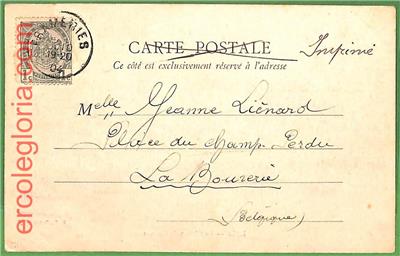 CARTE POSTALE
Imprimé
Ce côté est exclusivement réservé à l'adresse
Melle Jeanne Liénard
Place du Champ Perdu
La Bouverie
(Belgique)
19-20
ercolegloria.com